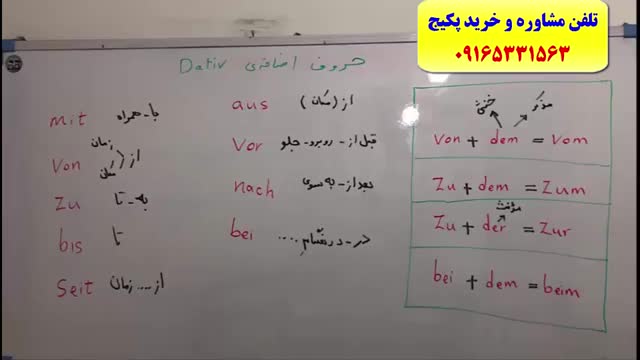 تلفن مشاوره و خرید پکیج
۰۹۱۶۵۳۳۱۵۶۳
حروف اضافه‌ی Dativ
mit با - همراه
von از زمان مکان
zu به - تا
bis تا
Seit از .... زمان
aus از (مکان)
vor قبل از - روبرو - جلو
nach بعد از - به سوی
bei در - در هنگامِ ....
خنثی مذکر
von + dem = vom
Zu + dem = Zum
مؤنث
Zu + der = Zur
bei + dem = beim